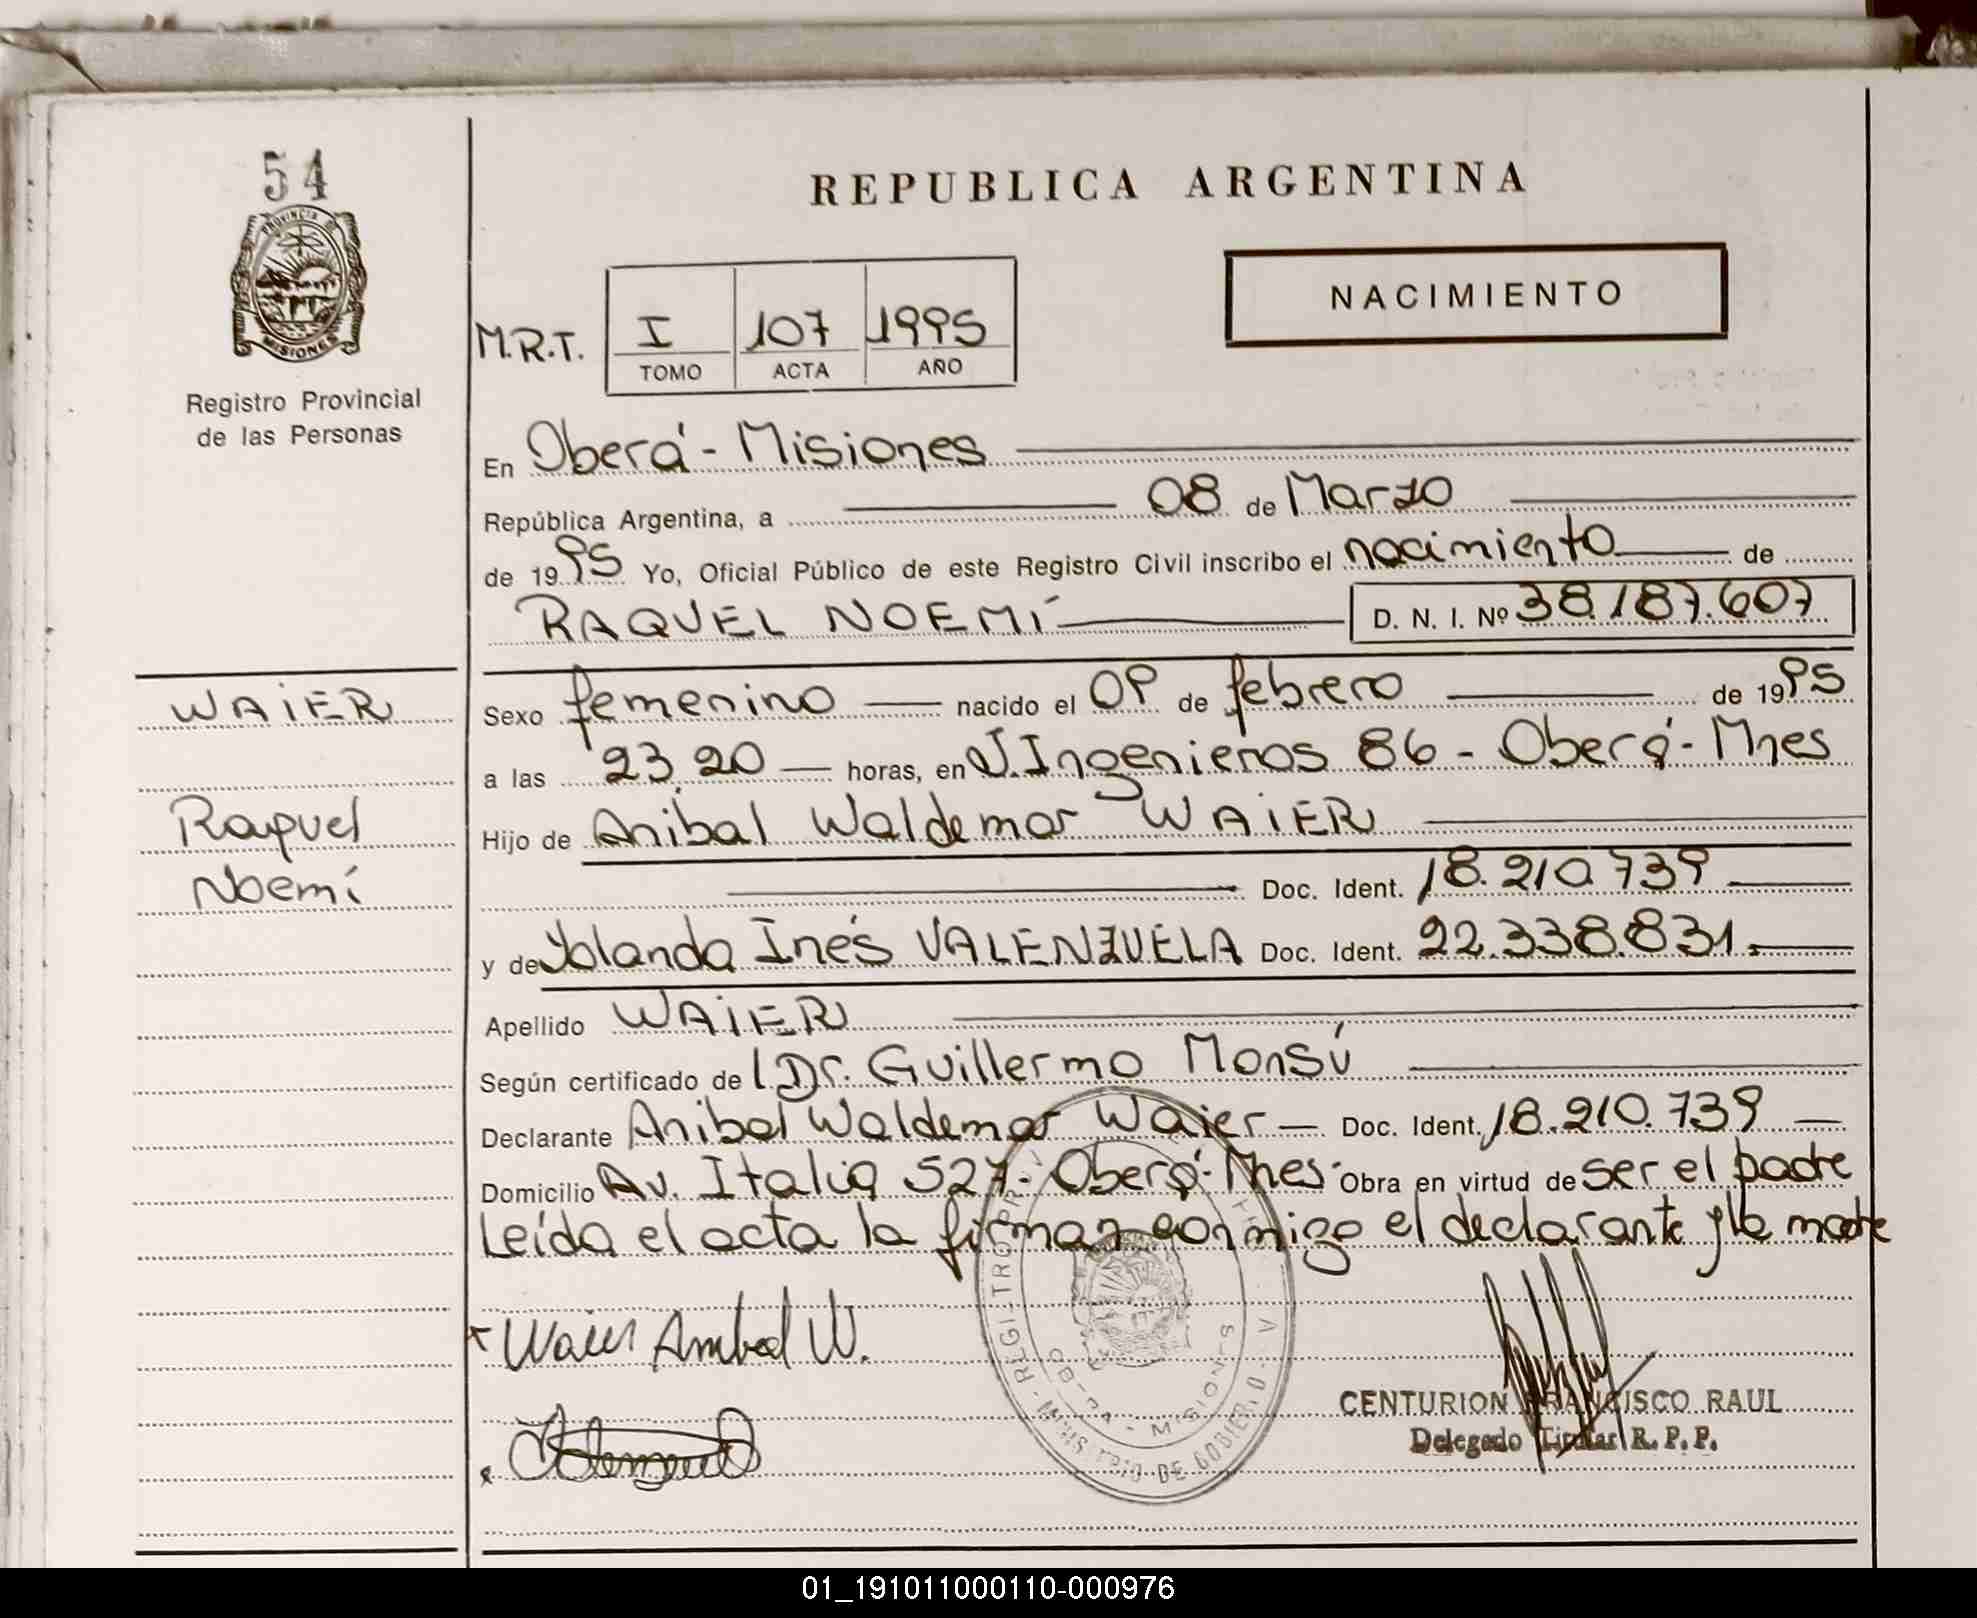 54
PROVINCIA DE
MISIONES
Registro Provincial
de las Personas
WAiER
Raquel
Noemí
REPUBLICA ARGENTINA
NACIMIENTO
M.R.T. I 107 1995
TOMO ACTA AÑO
En Oberá - Misiones
República Argentina, a 08 de Marzo
de 1995 Yo, Oficial Público de este Registro Civil inscribo el nacimiento de
RAQUEL NOEMÍ D. N. I. Nº 38.187.607
Sexo femenino nacido el 09 de febrero de 1995
a las 23,20 horas, en J. Ingenieros 86 - Oberá - Mnes
Hijo de Anibal Waldemar WAiER
Doc. Ident. 18.210.739
y de Yolanda Inés VALENZUELA Doc. Ident. 22.338.831.
Apellido WAiER
Según certificado de Dr. Guillermo Monsú
Declarante Anibal Waldemar Waier Doc. Ident. 18.210.739
Domicilio Av. Italia 527 - Oberá - Mnes Obra en virtud de ser el padre
Leída el acta la firman conmigo el declarante y la madre
Waier Anibal W.
CENTURION FRANCISCO RAUL
Delegado Titular R. P. P.
MISIONES
DE GOBIERNO
01_191011000110-000976